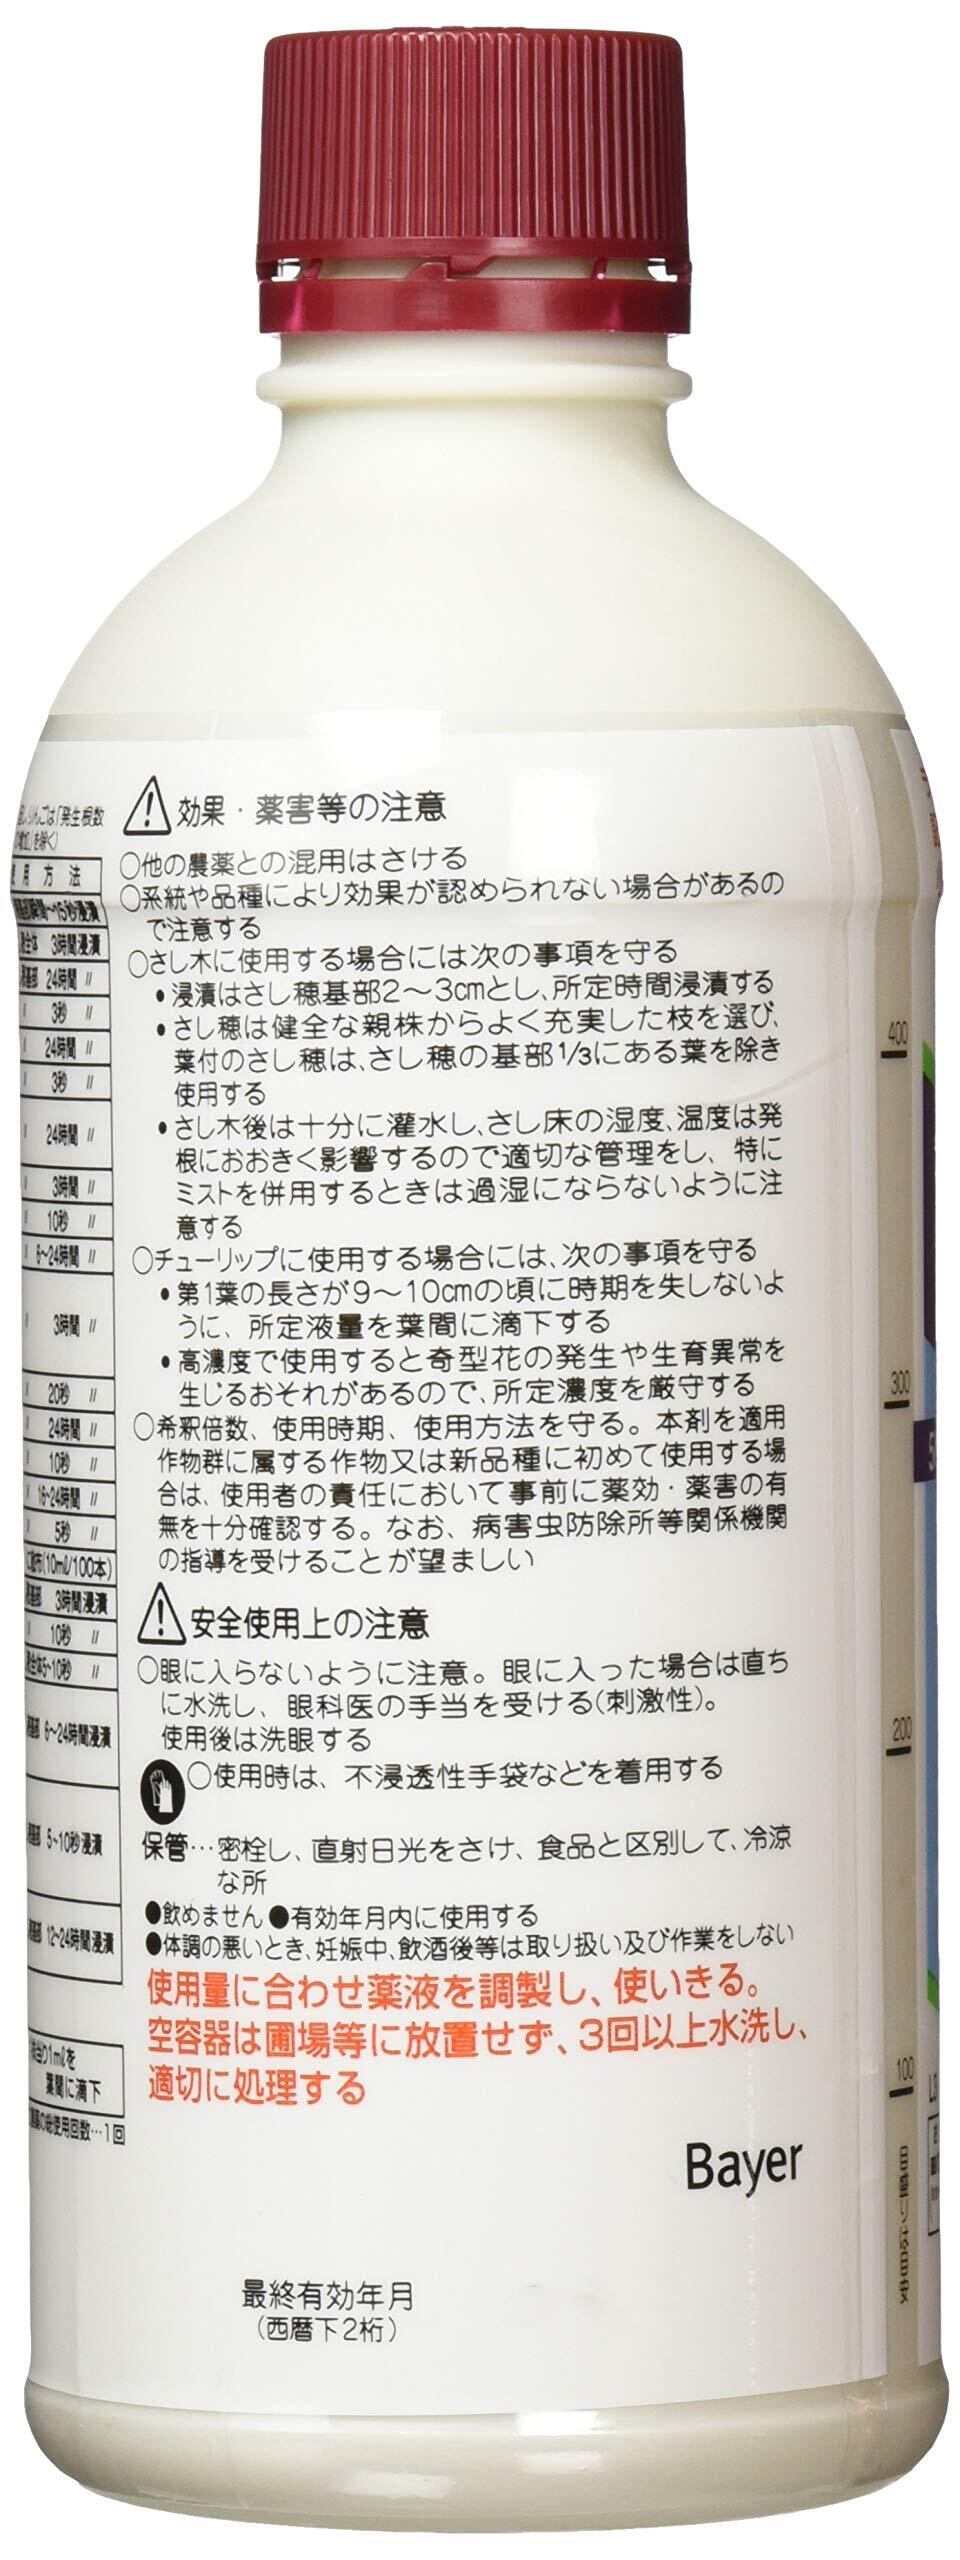 りんごは「発生根数
を除く)
用方法
瞬間〜15秒浸漬
全体 3時間浸漬
基部 24時間 〃
3秒 〃
24時間 〃
3秒 〃
24時間 〃
3時間 〃
10秒 〃
6〜24時間 〃
3時間 〃
20秒 〃
24時間 〃
10秒 〃
16〜24時間 〃
5秒 〃
(10mℓ/100本)
基部 3時間浸漬
10秒 〃
全体5〜10秒 〃
基部 6〜24時間浸漬
基部 5〜10秒浸漬
基部 12〜24時間浸漬
当り1mℓを
葉間に滴下
の総使用回数…1回
効果・薬害等の注意
○他の農薬との混用はさける
○系統や品種により効果が認められない場合があるの
で注意する
○さし木に使用する場合には次の事項を守る
•浸漬はさし穂基部2〜3cmとし、所定時間浸漬する
•さし穂は健全な親株からよく充実した枝を選び、
葉付のさし穂は、さし穂の基部1/3にある葉を除き
使用する
•さし木後は十分に灌水し、さし床の湿度、温度は発
根におおきく影響するので適切な管理をし、特に
ミストを併用するときは過湿にならないように注
意する
○チューリップに使用する場合には、次の事項を守る
•第1葉の長さが9〜10cmの頃に時期を失しないよ
うに、所定液量を葉間に滴下する
•高濃度で使用すると奇型花の発生や生育異常を
生じるおそれがあるので、所定濃度を厳守する
○希釈倍数、使用時期、使用方法を守る。本剤を適用
作物群に属する作物又は新品種に初めて使用する場
合は、使用者の責任において事前に薬効・薬害の有
無を十分確認する。なお、病害虫防除所等関係機関
の指導を受けることが望ましい
安全使用上の注意
○眼に入らないように注意。眼に入った場合は直ち
に水洗し、眼科医の手当を受ける(刺激性)。
使用後は洗眼する
○使用時は、不浸透性手袋などを着用する
保管…密栓し、直射日光をさけ、食品と区別して、冷涼
な所
●飲めません ●有効年月内に使用する
●体調の悪いとき、妊娠中、飲酒後等は取り扱い及び作業をしない
使用量に合わせ薬液を調製し、使いきる。
空容器は圃場等に放置せず、3回以上水洗し、
適切に処理する
Bayer
最終有効年月
(西暦下2桁)
400
300
200
100
目盛りは目安